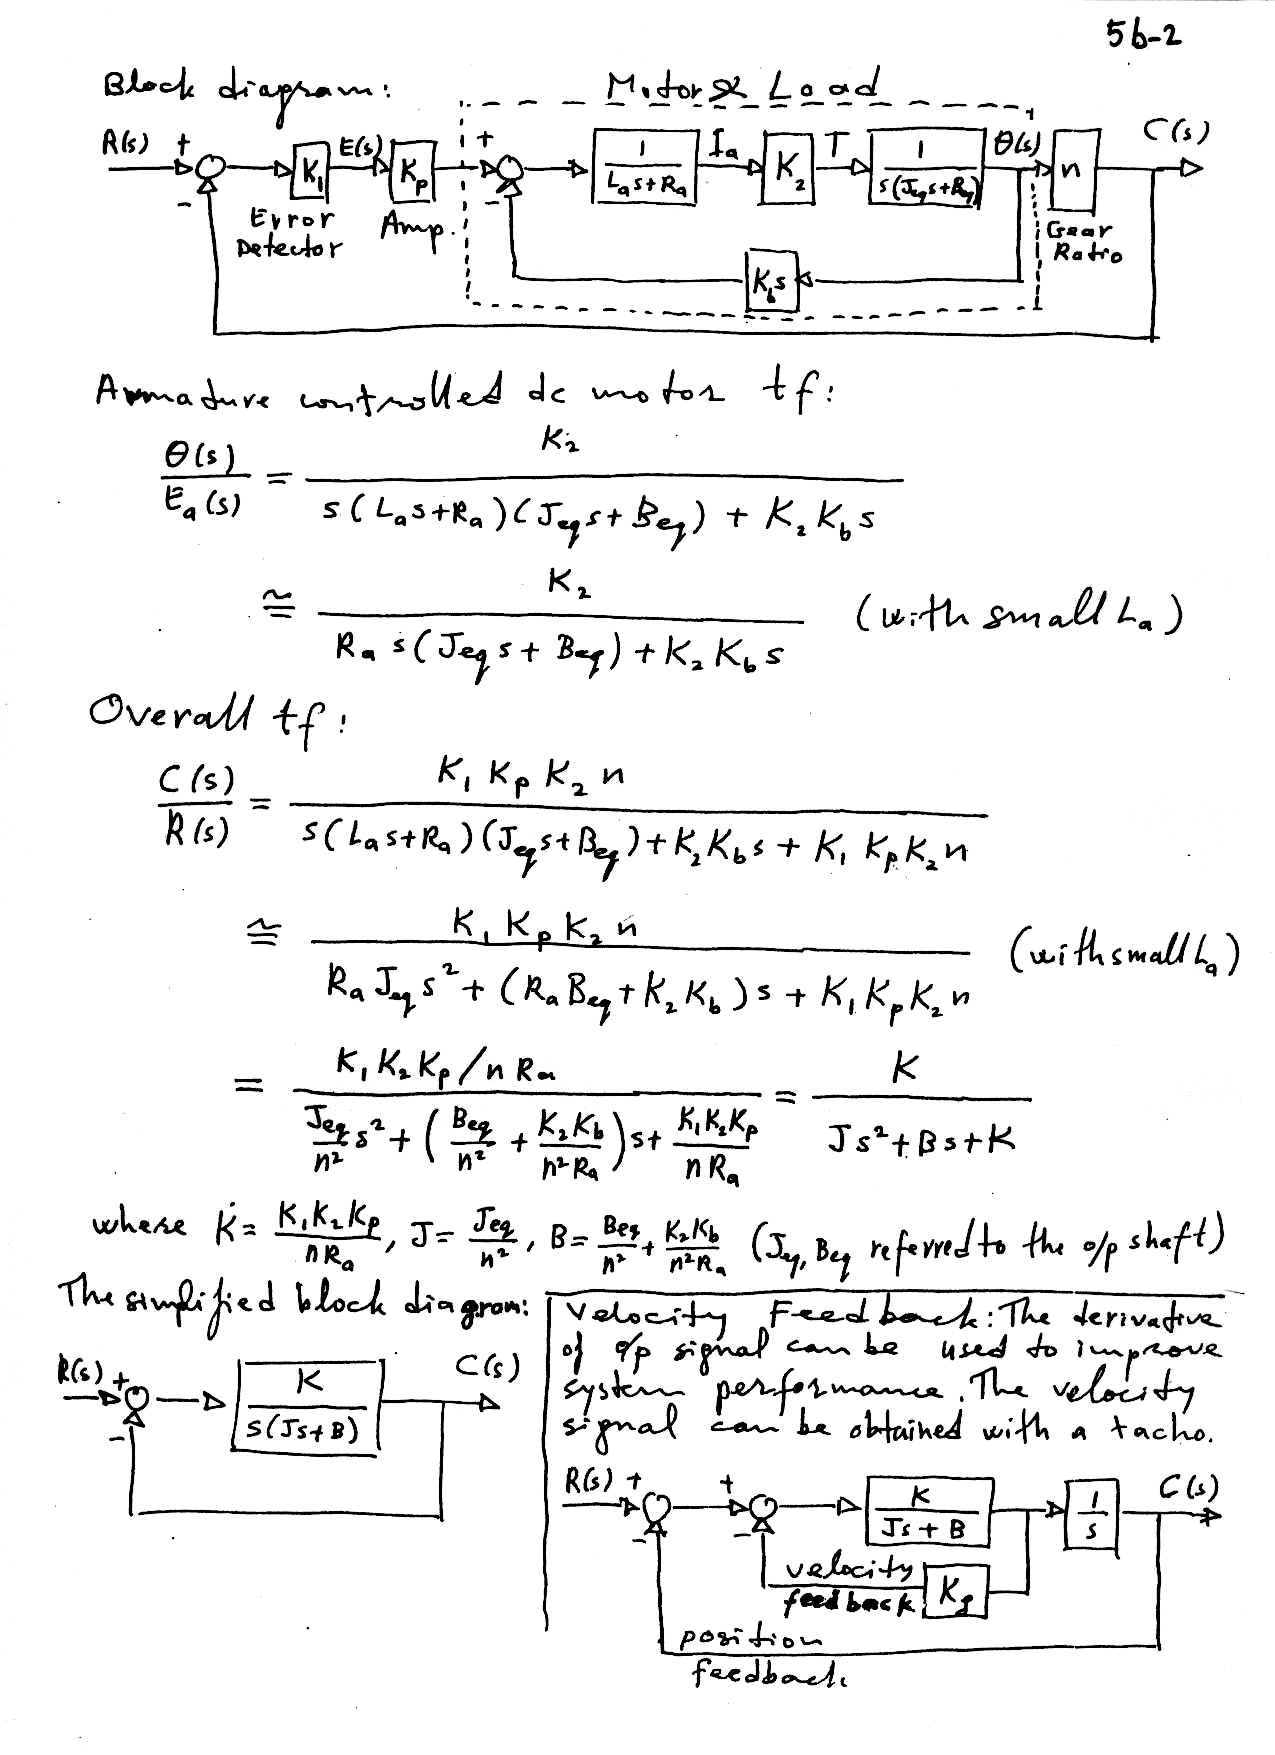 5b-2
Block diagram: Motor & Load
R(s) + K₁ E(s) Kp + 1/(Las+Ra) Ia K₂ T 1/(s(Jeqs+Beq)) θ(s) n C(s)
- Error Detector Amp. - Gear Ratio
Kbs
Armature controlled dc motor tf:
θ(s)/Ea(s) = K₂ / (s(Las+Ra)(Jeqs+Beq) + K₂Kbs)
≅ K₂ / (Ra s(Jeqs+Beq) + K₂Kbs) (with small La)
Overall tf:
C(s)/R(s) = K₁KpK₂n / (s(Las+Ra)(Jeqs+Beq)+K₂Kbs + K₁KpK₂n)
≅ K₁KpK₂n / (RaJeqs² + (RaBeq+K₂Kb)s + K₁KpK₂n) (with small La)
= (K₁K₂Kp/nRa) / (Jeq/n² s² + (Beq/n² + K₂Kb/n²Ra)s + K₁K₂Kp/nRa) = K / (Js²+Bs+K)
where K = K₁K₂Kp/nRa, J = Jeq/n², B = Beq/n² + K₂Kb/n²Ra (Jeq, Beq referred to the o/p shaft)
The simplified block diagram:
R(s) + - K/(s(Js+B)) C(s)
Velocity Feedback: The derivative
of o/p signal can be used to improve
system performance. The velocity
signal can be obtained with a tacho.
R(s) + - + - K/(Js+B) 1/s C(s)
velocity
feedback Kg
position
feedback